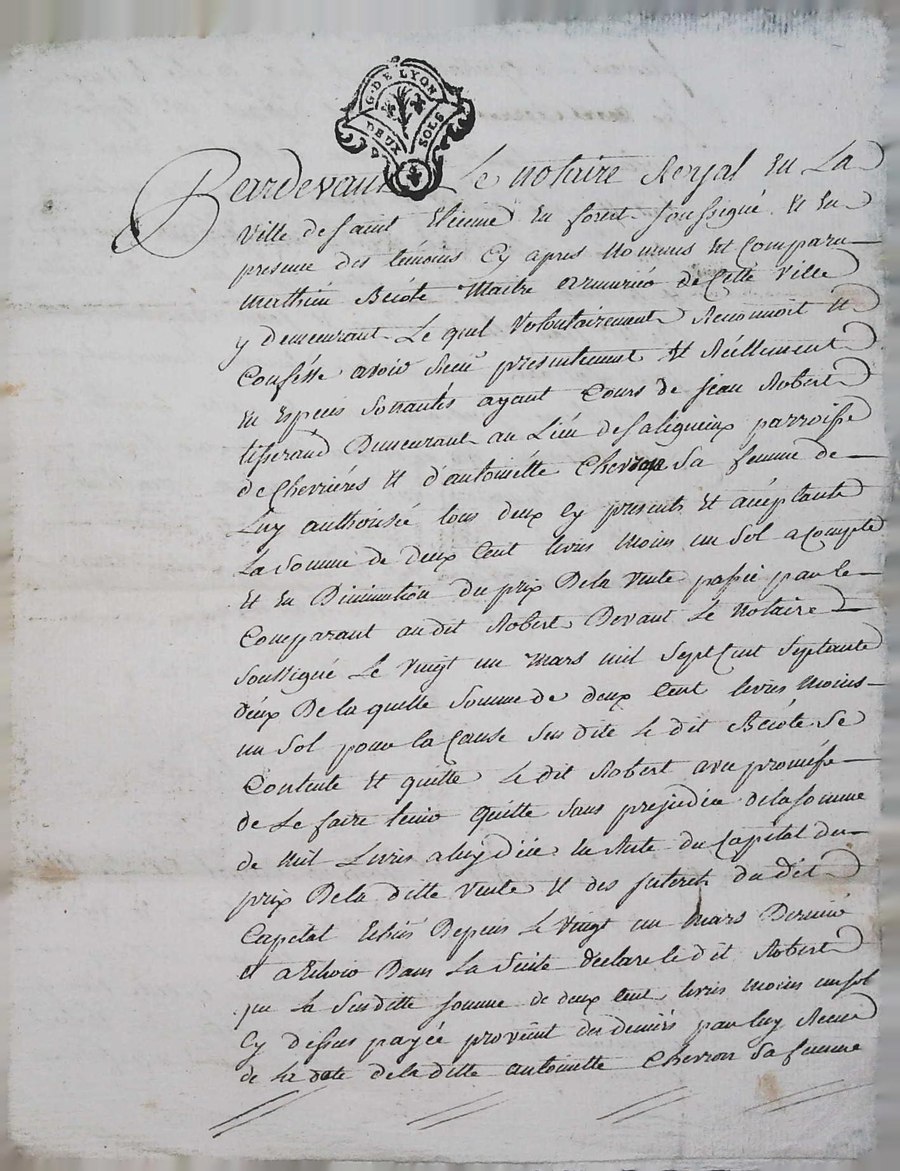 G. DE LYON
DEUX SOLS
Pardevant Le notaire Royal En La
Ville de Saint Etienne En forest soussigné Et En
presence des temoins Cy apres Nommés Est Comparu
Mathieu Maitre armurier de Cette Ville
y demeurant Le quel Volontairement Reconnoit Et
Confesse avoir Receu presentement Et Réellement
En Especes Sonnantes ayant Cours de jean Robert
tisserand Demeurant au Lieu de parroisse
de Chevriéres Et d'antoinétte Chevron Sa femme de
Luy authorisée tous deux Cy presents Et acéptants
La Somme de deux Cent livres moins un Sol a Compte
Et En Diminution du prix De la Vente passée par le
Comparant audit Robert Devant Le Notaire
Soussigné Le Vingt un Mars mil Sept Cent Septante
deux De la quelle Somme de deux Cent livres moins
un Sol pour la Cause Susdite Le dit Se
Contente Et quitte Le dit Robert avec promésse
de Le faire tenir quitte Sans prejudice de la Somme
de Mil Livres a luy düe En Reste du Capital du
prix De la ditte Vente Et des Interets du dit
Capital Echus Depuis Le Vingt un Mars Dernier
et a Echoir Dans La Suite declare le dit Robert
que La Susditte Somme de deux Cent livres moins un sol
Cy dessus payée provient des deniers par luy Receus
de La dote de la ditte antoinette Chevron Sa femme